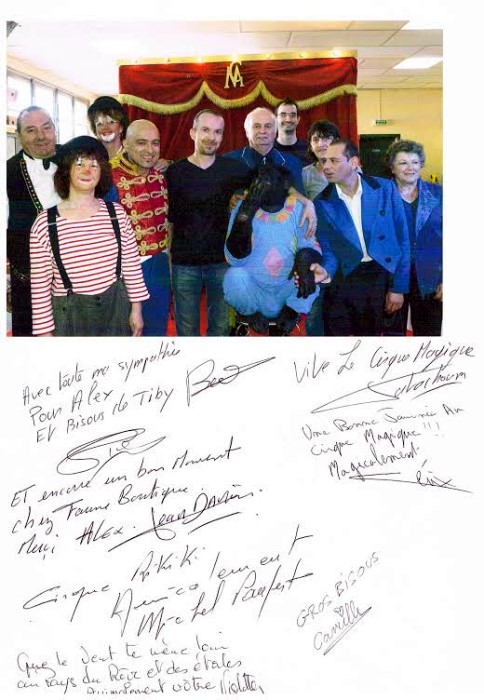 CM
Avec toute ma sympathie
Pour Alex
Et Bisous de Tiby
Vive Le Cirque Magique
Une Bonne Journée Au
Cirque Magique !!!
Magicalement,
Et encore un bon Moment
chez Faune Boutique.
Merci Alex. Jean
Cirque Rikiki
Amicalement
Michel
GROS BISOUS
Camille
Que le Vent te mène loin
au pays du Rêve et des étoiles
votre Violette